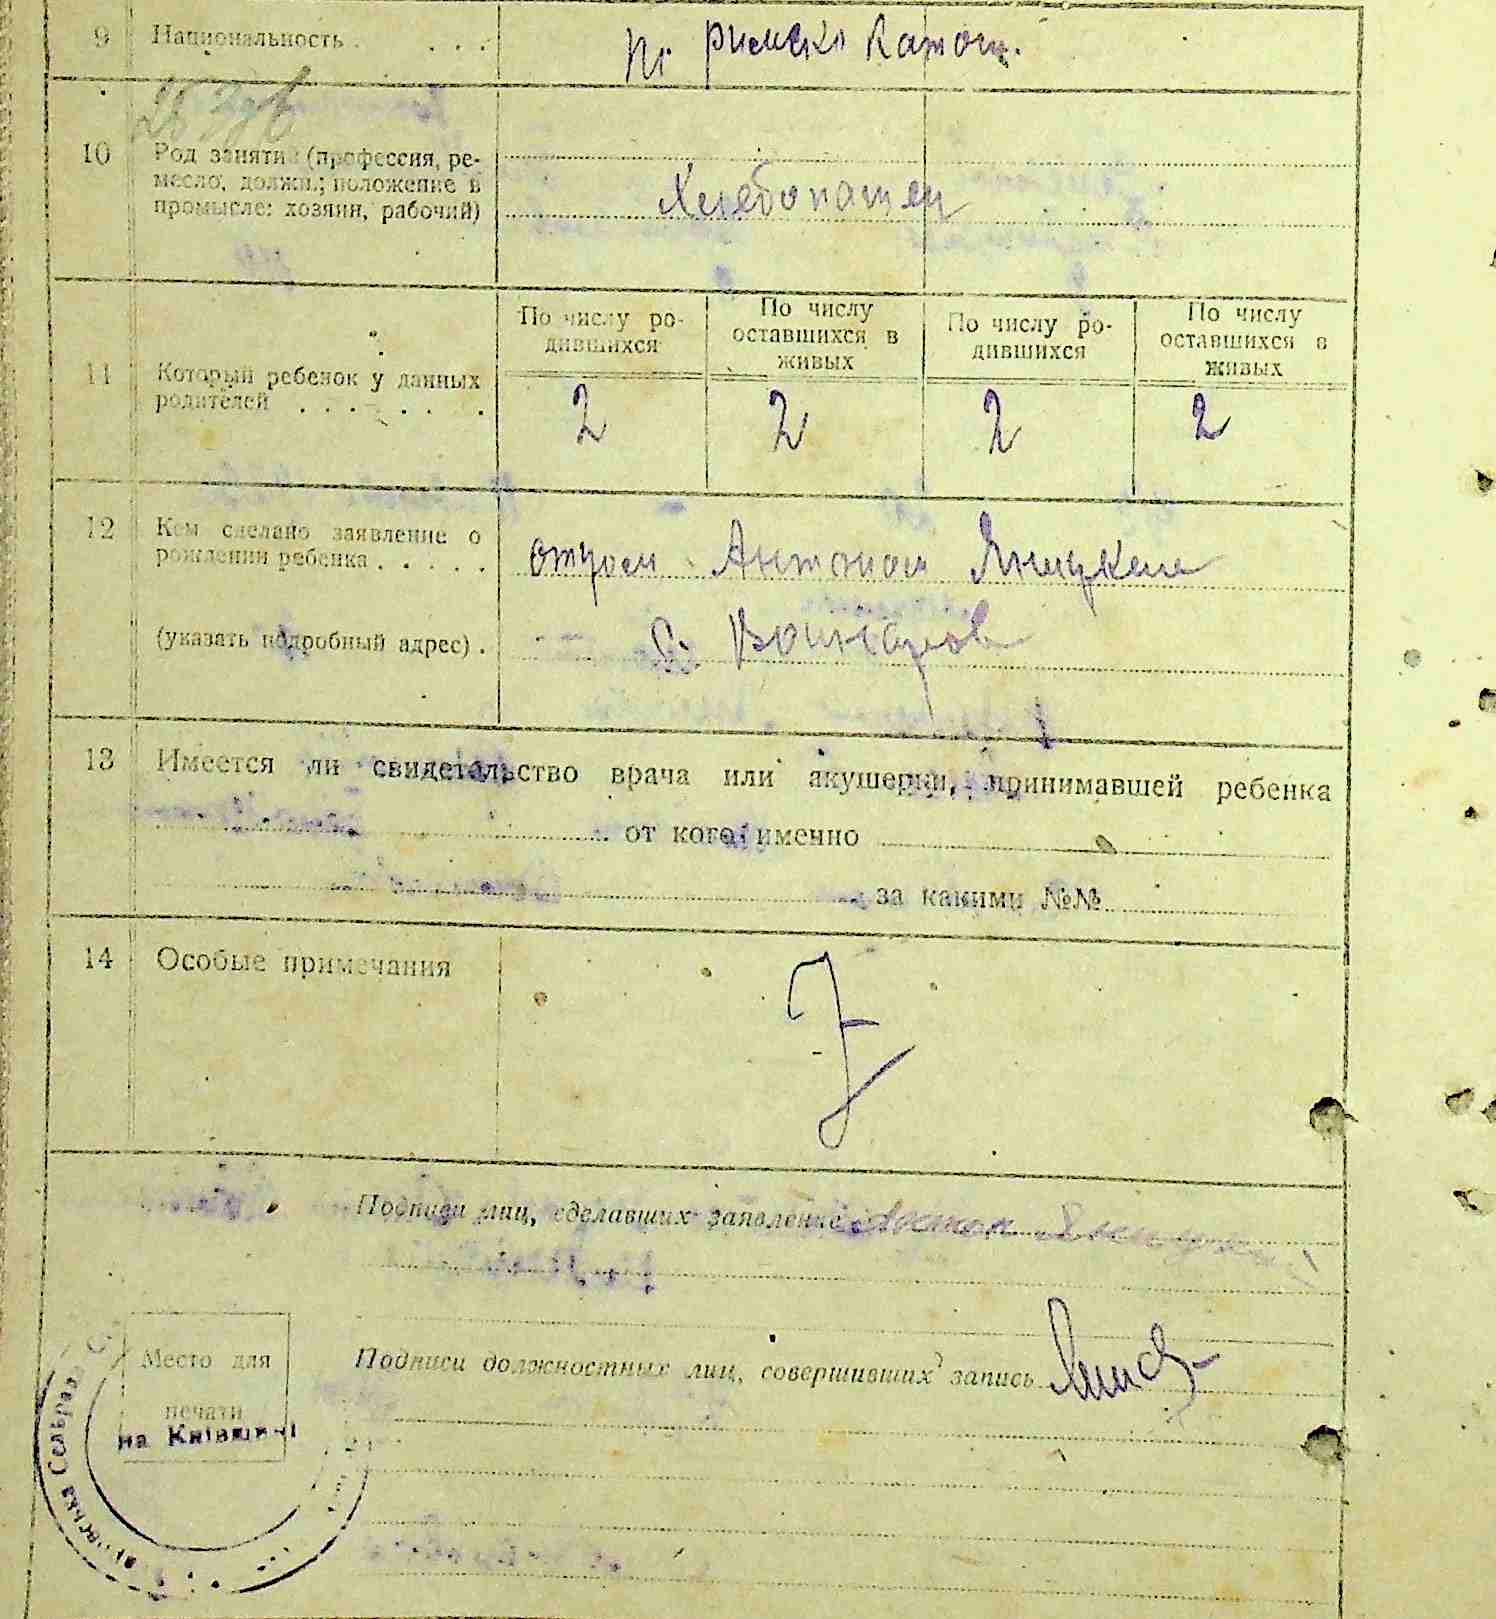 9 Национальность . . . .
римско катол.
10 Род занятий (профессия, ре-
месло, должн.; положение в
промысле: хозяин, рабочий)
Хлебопашец
11 Который ребенок у данных
родителей . . . . . . .
По числу ро-
дившихся
По числу
оставшихся в
живых
По числу ро-
дившихся
По числу
оставшихся в
живых
2 2 2 2
12 Кем сделано заявление о
рождении ребенка . . . . .
отцом Антоном Яницким
(указать подробный адрес) .
с.
13 Имеется ли свидетельство врача или акушерки, принимавшей ребенка
от кого именно
за какими №№
14 Особые примечания
Z
Подписи лиц, сделавших заявление Антон
Подписи должностных лиц, совершивших запись
Место для
печати
на Київщині
Сельрада